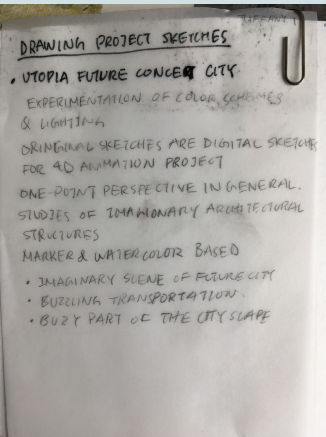 TIFFANY
DRAWING PROJECT SKETCHES
• UTOPIA FUTURE CONCEPT CITY.
EXPERIMENTATION OF COLOR SCHEMES
& LIGHTING
ORINGINAL SKETCHES ARE DIGITAL SKETCHES
FOR 4D ANIMATION PROJECT
ONE-POINT PERSPECTIVE IN GENERAL.
STUDIES OF IMAIONARY ARCHITECTURAL
STRUCTURES
MARKER & WATERCOLOR BASED
• IMAGINARY SCENE OF FUTURE CITY
• BUZZLING TRANSPORTATION.
• BUZY PART OF THE CITYSCAPE